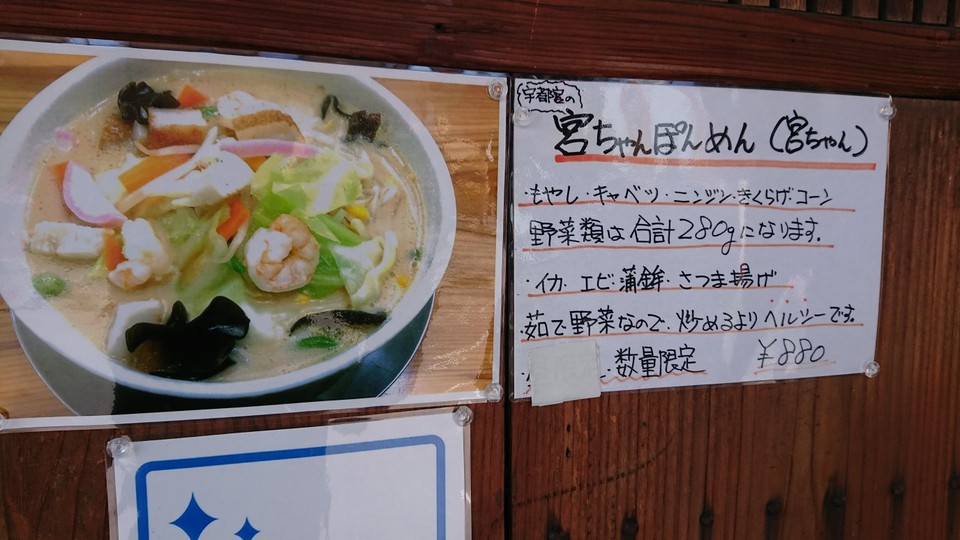 宇都宮の
宮ちゃんぽんめん(宮ちゃん)
・もやし・キャベツ・ニンジン・きくらげ・コーン
野菜類は合計280gになります。
・イカ・エビ・蒲鉾・さつま揚げ
茹で野菜なので、炒めるよりヘルシーです。
・数量限定 ¥880